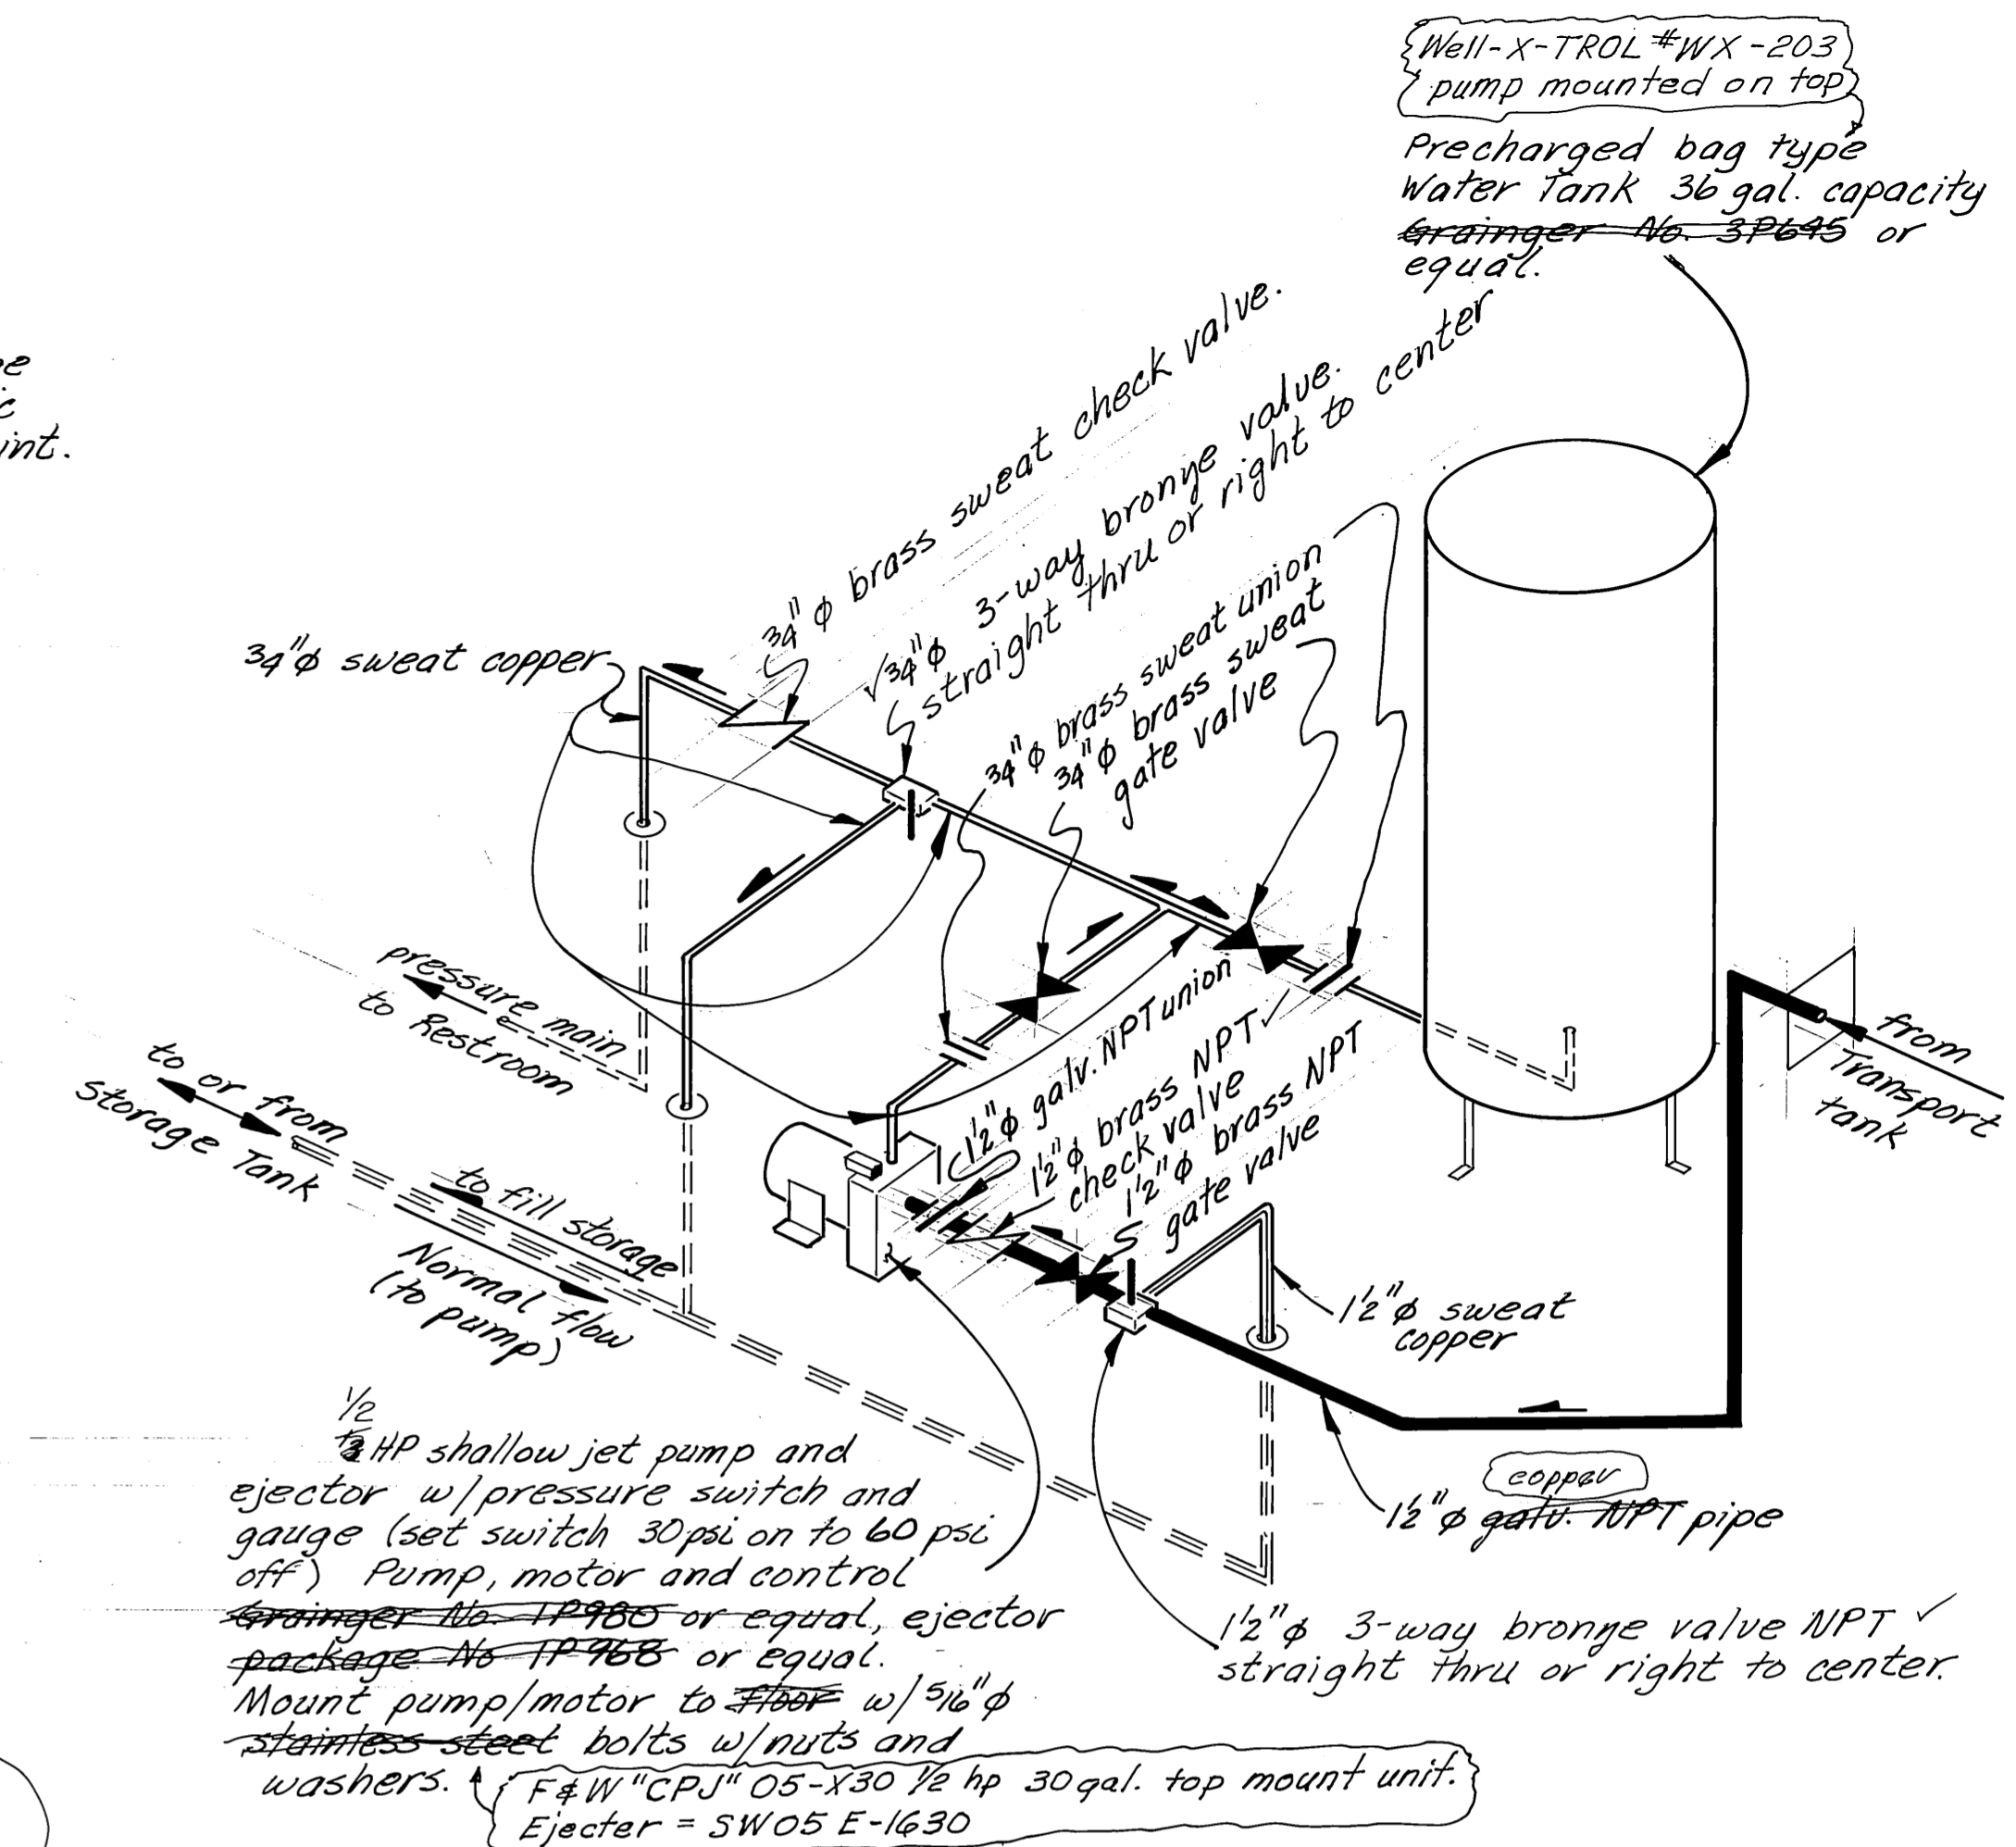 Well-X-TROL #WX-203
pump mounted on top
Precharged bag type
Water Tank 36 gal. capacity
Grainger No. 3P645 or
equal.
int.
3/4"φ brass sweat check valve.
3/4"φ 3-way bronze valve.
straight thru or right to center
3/4"φ brass sweat union
3/4"φ brass sweat
gate valve
3/4"φ sweat copper
pressure main
to Restroom
to or from
Storage Tank
to fill storage
Normal flow
(to pump)
1 1/2"φ galv. NPT union
1 1/2"φ brass NPT
check valve
1 1/2"φ brass NPT
gate valve
from
Transport
tank
1 1/2"φ sweat
copper
copper
1 1/2"φ galv. NPT pipe
1 1/2"φ 3-way bronze valve NPT ✓
straight thru or right to center.
1/2
HP shallow jet pump and
ejector w/pressure switch and
gauge (set switch 30psi on to 60 psi
off) Pump, motor and control
Grainger No. 1P980 or equal, ejector
package No 1P968 or equal.
Mount pump/motor to floor w/ 5/16"φ
stainless steel bolts w/nuts and
washers.
F&W "CPJ" 05-X30 1/2 hp 30gal. top mount unit.
Ejecter = SW05 E-1630